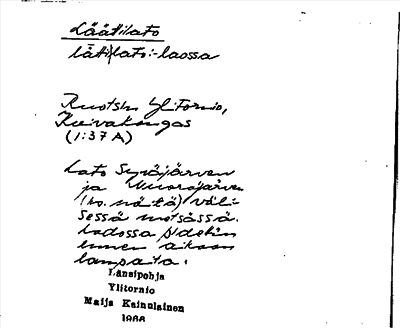 Läätilato
läti|lato:-laossa
Ruotsin Ylitornio,
Kuivakangas
(1:37 A)
Lato Syväjärven
ja Vuorajärven
(ks. nätä) väli-
sessä metsässä.
Ladossa pidettiin
ennen aikaan
lampaita.
Länsipohja
Ylitornio
Maija Kainulainen
1966